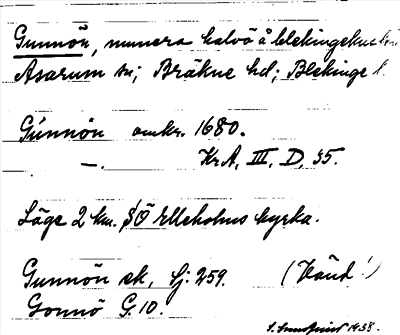 Gunnön, numera halvö å blekingekusten
Asarum sn; Bräkne hd; Blekinge l.
Gúnnön omkr. 1680.
—. Kr.A, III, D, 35.
Läge 2 km. SÖ Elleholms kyrka.
Gunnön ek, Gj. 259. (Känd!)
Gonnö G. 10.
1938.